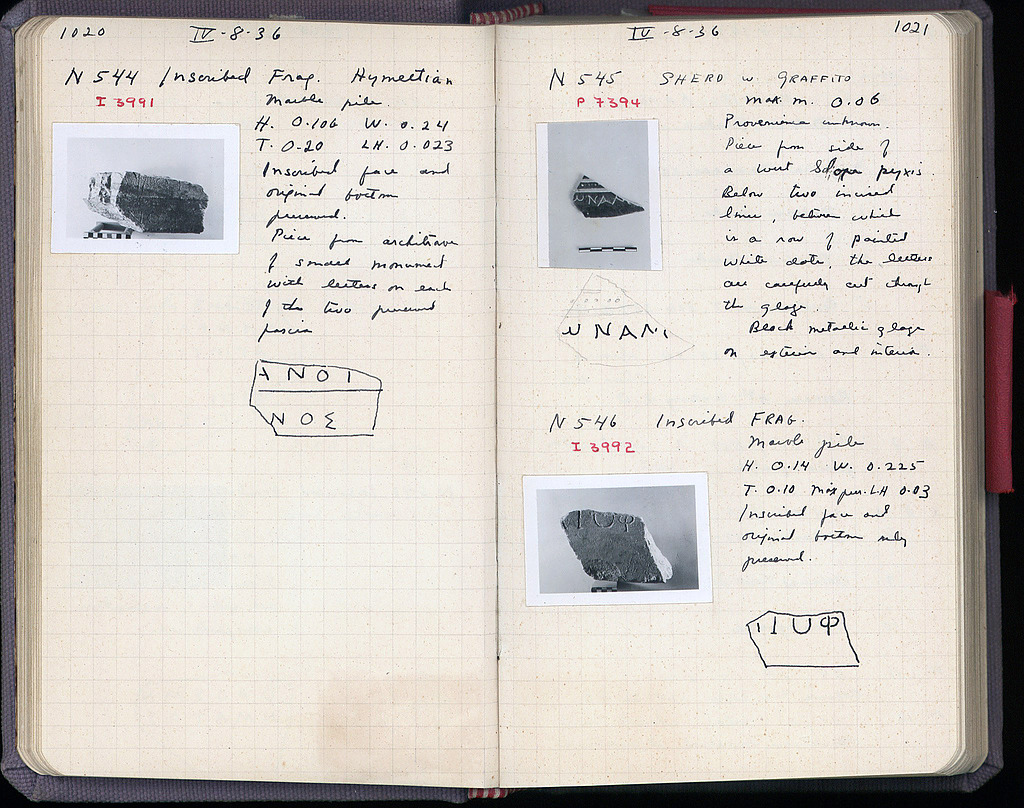 1020
IV-8-36
N 544 Inscribed Frag. Hymettian
I 3991
Marble pile.
H. 0.106 W. 0.24
T. 0.20 LH. 0.023
Inscribed face and
original bottom
preserved.
Piece from architrave
of small monument
with letters on each
of the two preserved
fascia
ΑΝΟΙ
ΝΟΣ
IV-8-36
1021
N 545 SHERD W. GRAFFITO
P 7394
max. m. 0.06
Provenience unknown.
Piece from side of
a West Slope pyxis.
Below two incised
lines, between which
is a row of painted
white dots, the letters
are carefully cut through
the glaze.
Black metallic glaze
on exterior and interior.
ΥΝΑΜΙ
N 546 Inscribed FRAG.
I 3992
Marble pile
H. 0.14 W. 0.225
T. 0.10 Max pres. LH 0.03
Inscribed face and
original bottom only
preserved.
ΙΙΟΦ